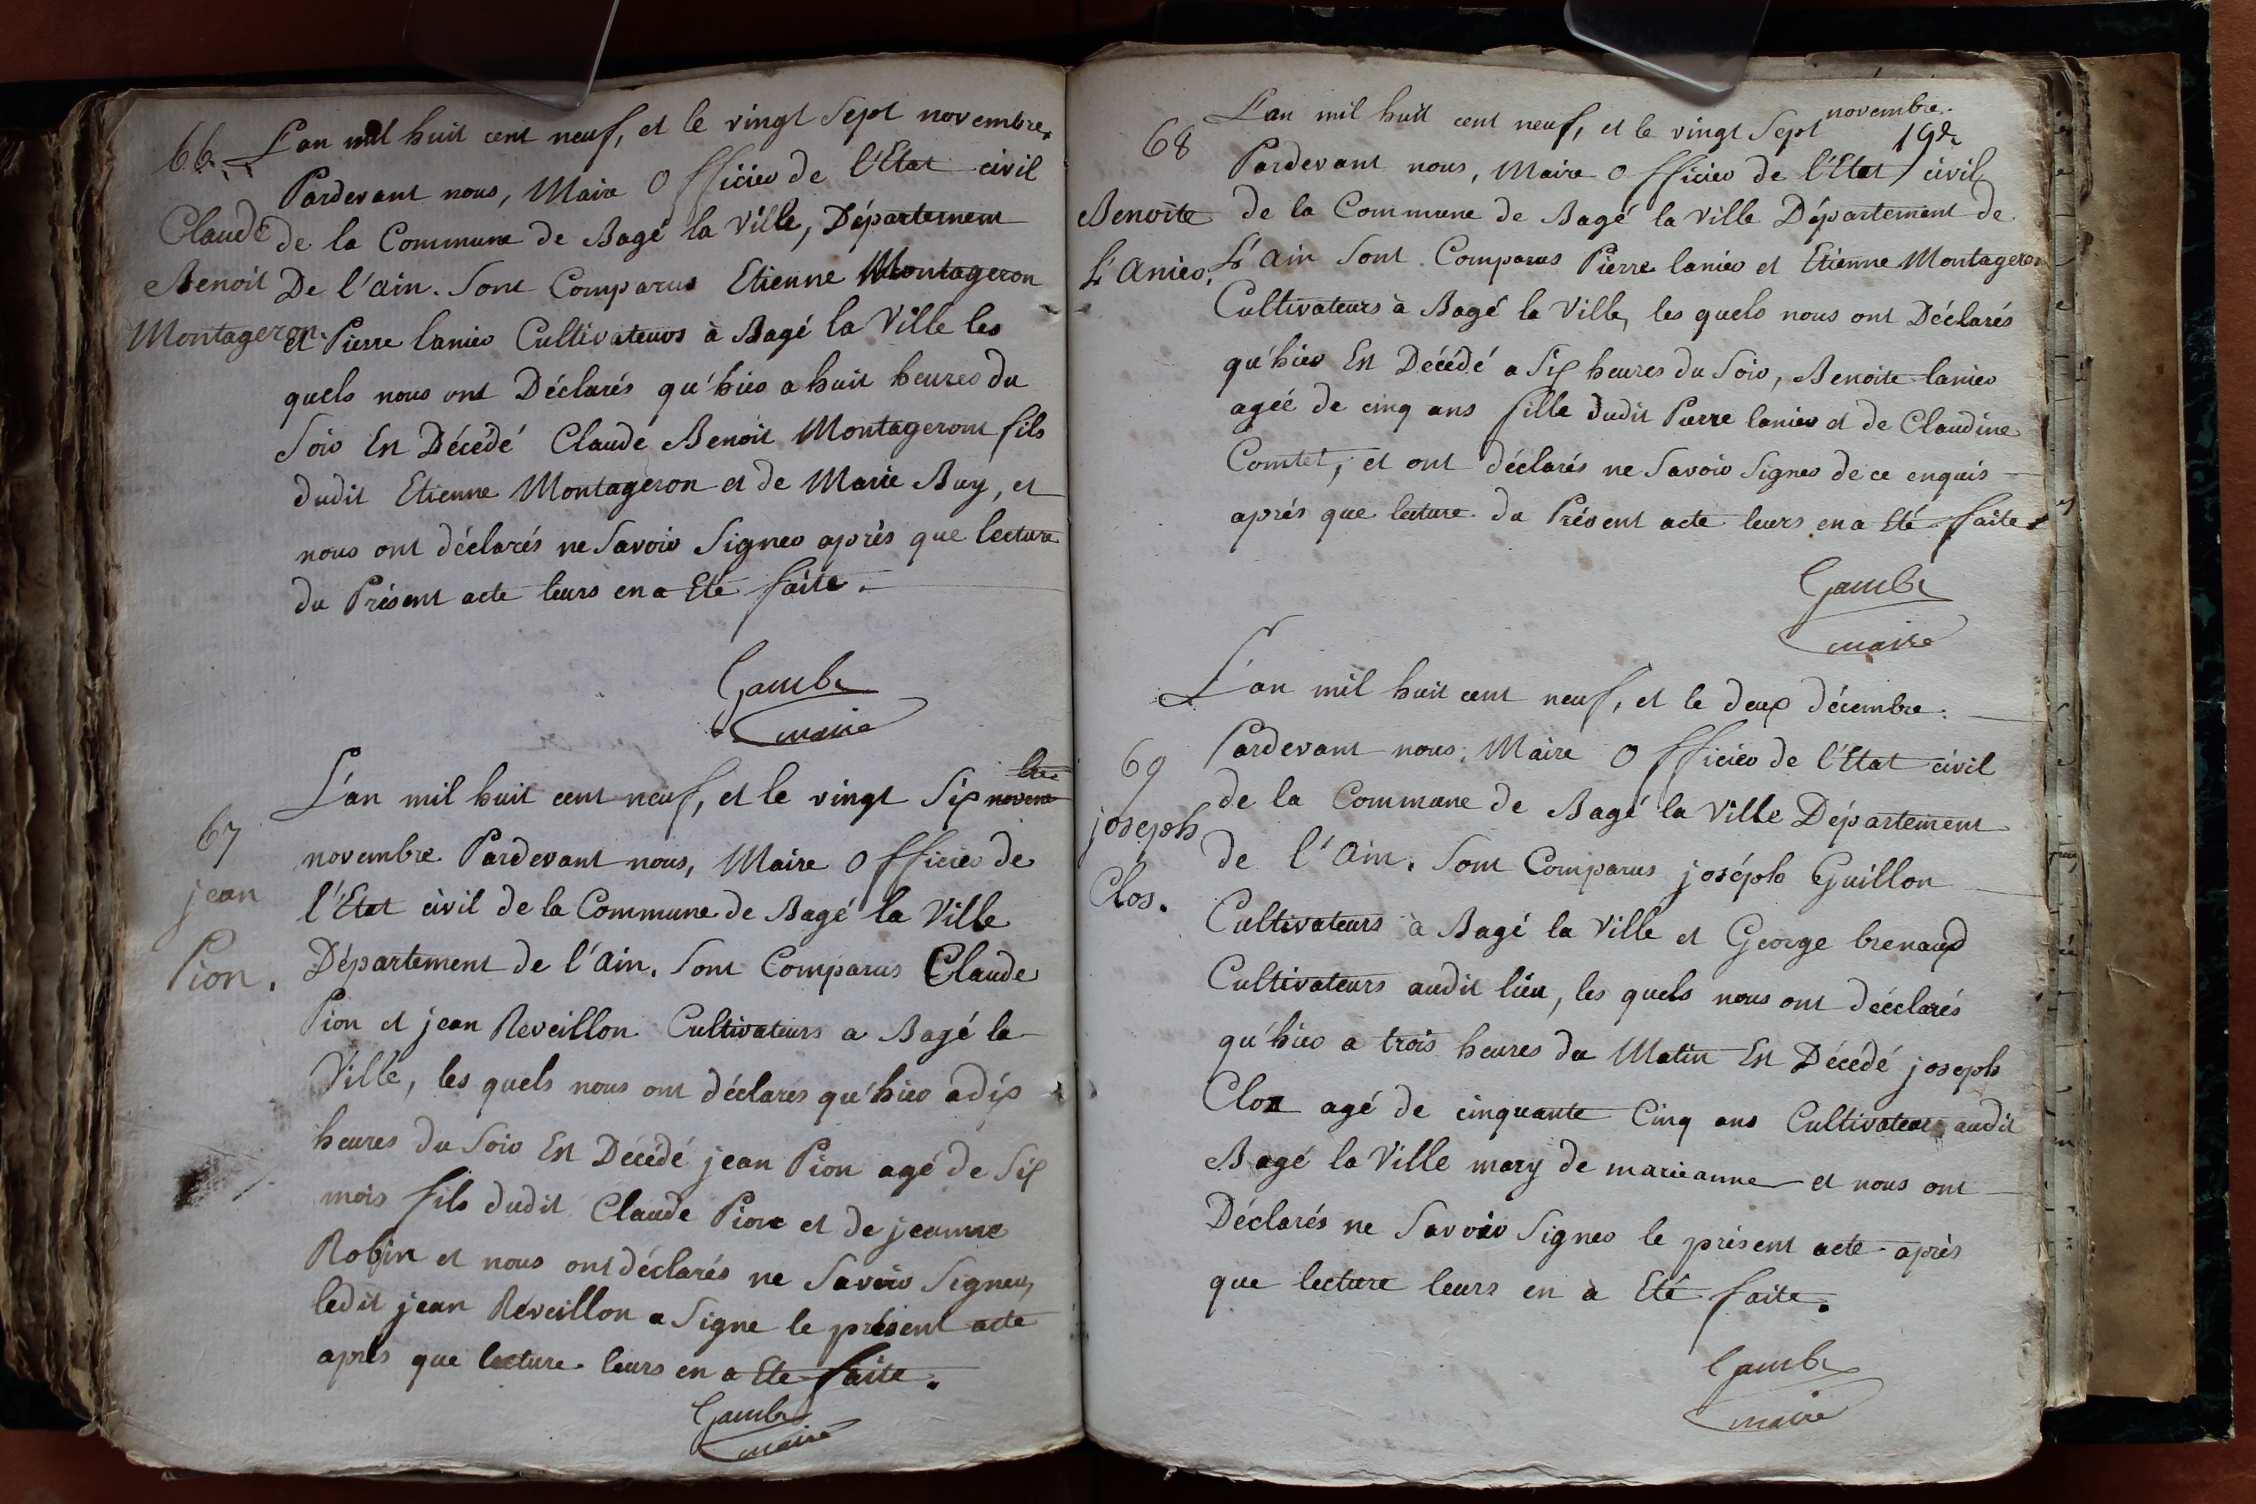 66. L'an mil huit cent neuf, et le vingt Sept novembre.
Pardevant nous, Maire Officier de l'Etat civil
Claude de la Commune de Bagé la Ville, Département
Benoit De l'ain. Sont Comparus Etienne Montageron
Montageron. et Pierre lanier Cultivateurs à Bagé la Ville les
quels nous ont Déclarés qu'hier a huit heures du
Soir Est Décédé Claude Benoit Montageront fils
dudit Etienne Montageron et de Marie Buy, et
nous ont déclarés ne Savoir Signer après que lecture
du Présent acte leurs en a Eté faite.
Gambe
maire
L'an mil huit cent neuf, et le vingt Six
67
novembre Pardevant nous, Maire Officier de
jean
l'Etat civil de la Commune de Bagé la Ville
Pion.
Département de l'ain. Sont Comparus Claude
Pion et jean Reveillon Cultivateurs a Bagé la
Ville, les quels nous ont déclarés qu'hier a dix
heures du Soir Est Décédé jean Pion agé de Six
mois fils dudit Claude Pion et de jeanne
Robin et nous ont déclarés ne Savoir Signer,
ledit jean Réveillon a Signe le présent acte
après que lecture leurs en a Ete faite.
Gambe
maire
L'an mil huit cent neuf, et le vingt Sept novembre.
68
Pardevant nous, Maire Officier de l'Etat civil
Benoite de la Commune de Bagé la Ville Département de
L'Anier. L'Ain Sont Comparus Pierre lanier et Etienne Montageron
Cultivateurs à Bagé la Ville, les quels nous ont Déclarés
qu'hier Est Décédé a Six heures du Soir, Benoite lanier
agéé de cinq ans fille dudit Pierre lanier et de Claudine
Comtet, et ont déclarés ne Savoir Signer de ce enquis
aprés que lecture du Présent acte leurs en a Eté faite
Gambe
maire
L'an mil huit cent neuf, et le deux décembre.
69
Pardevant nous, Maire Officier de l'Etat civil
de la Commune de Bagé la Ville Département
joseph
de l'Ain. Sont Comparus joséph Guillon
Clos.
Cultivateurs à Bagé la Ville et George brenaud
Cultivateurs audit lieu, les quels nous ont déeclarés
qu'hier a trois heures du Matin Est Décédé joseph
Clos agé de cinquante Cinq ans Cultivateur audit
Bagé la Ville mary de marieanne et nous ont
Déclarés ne Savoir Signer le présent acte après
que lecture leurs en a Eté faite.
Gambe
maire